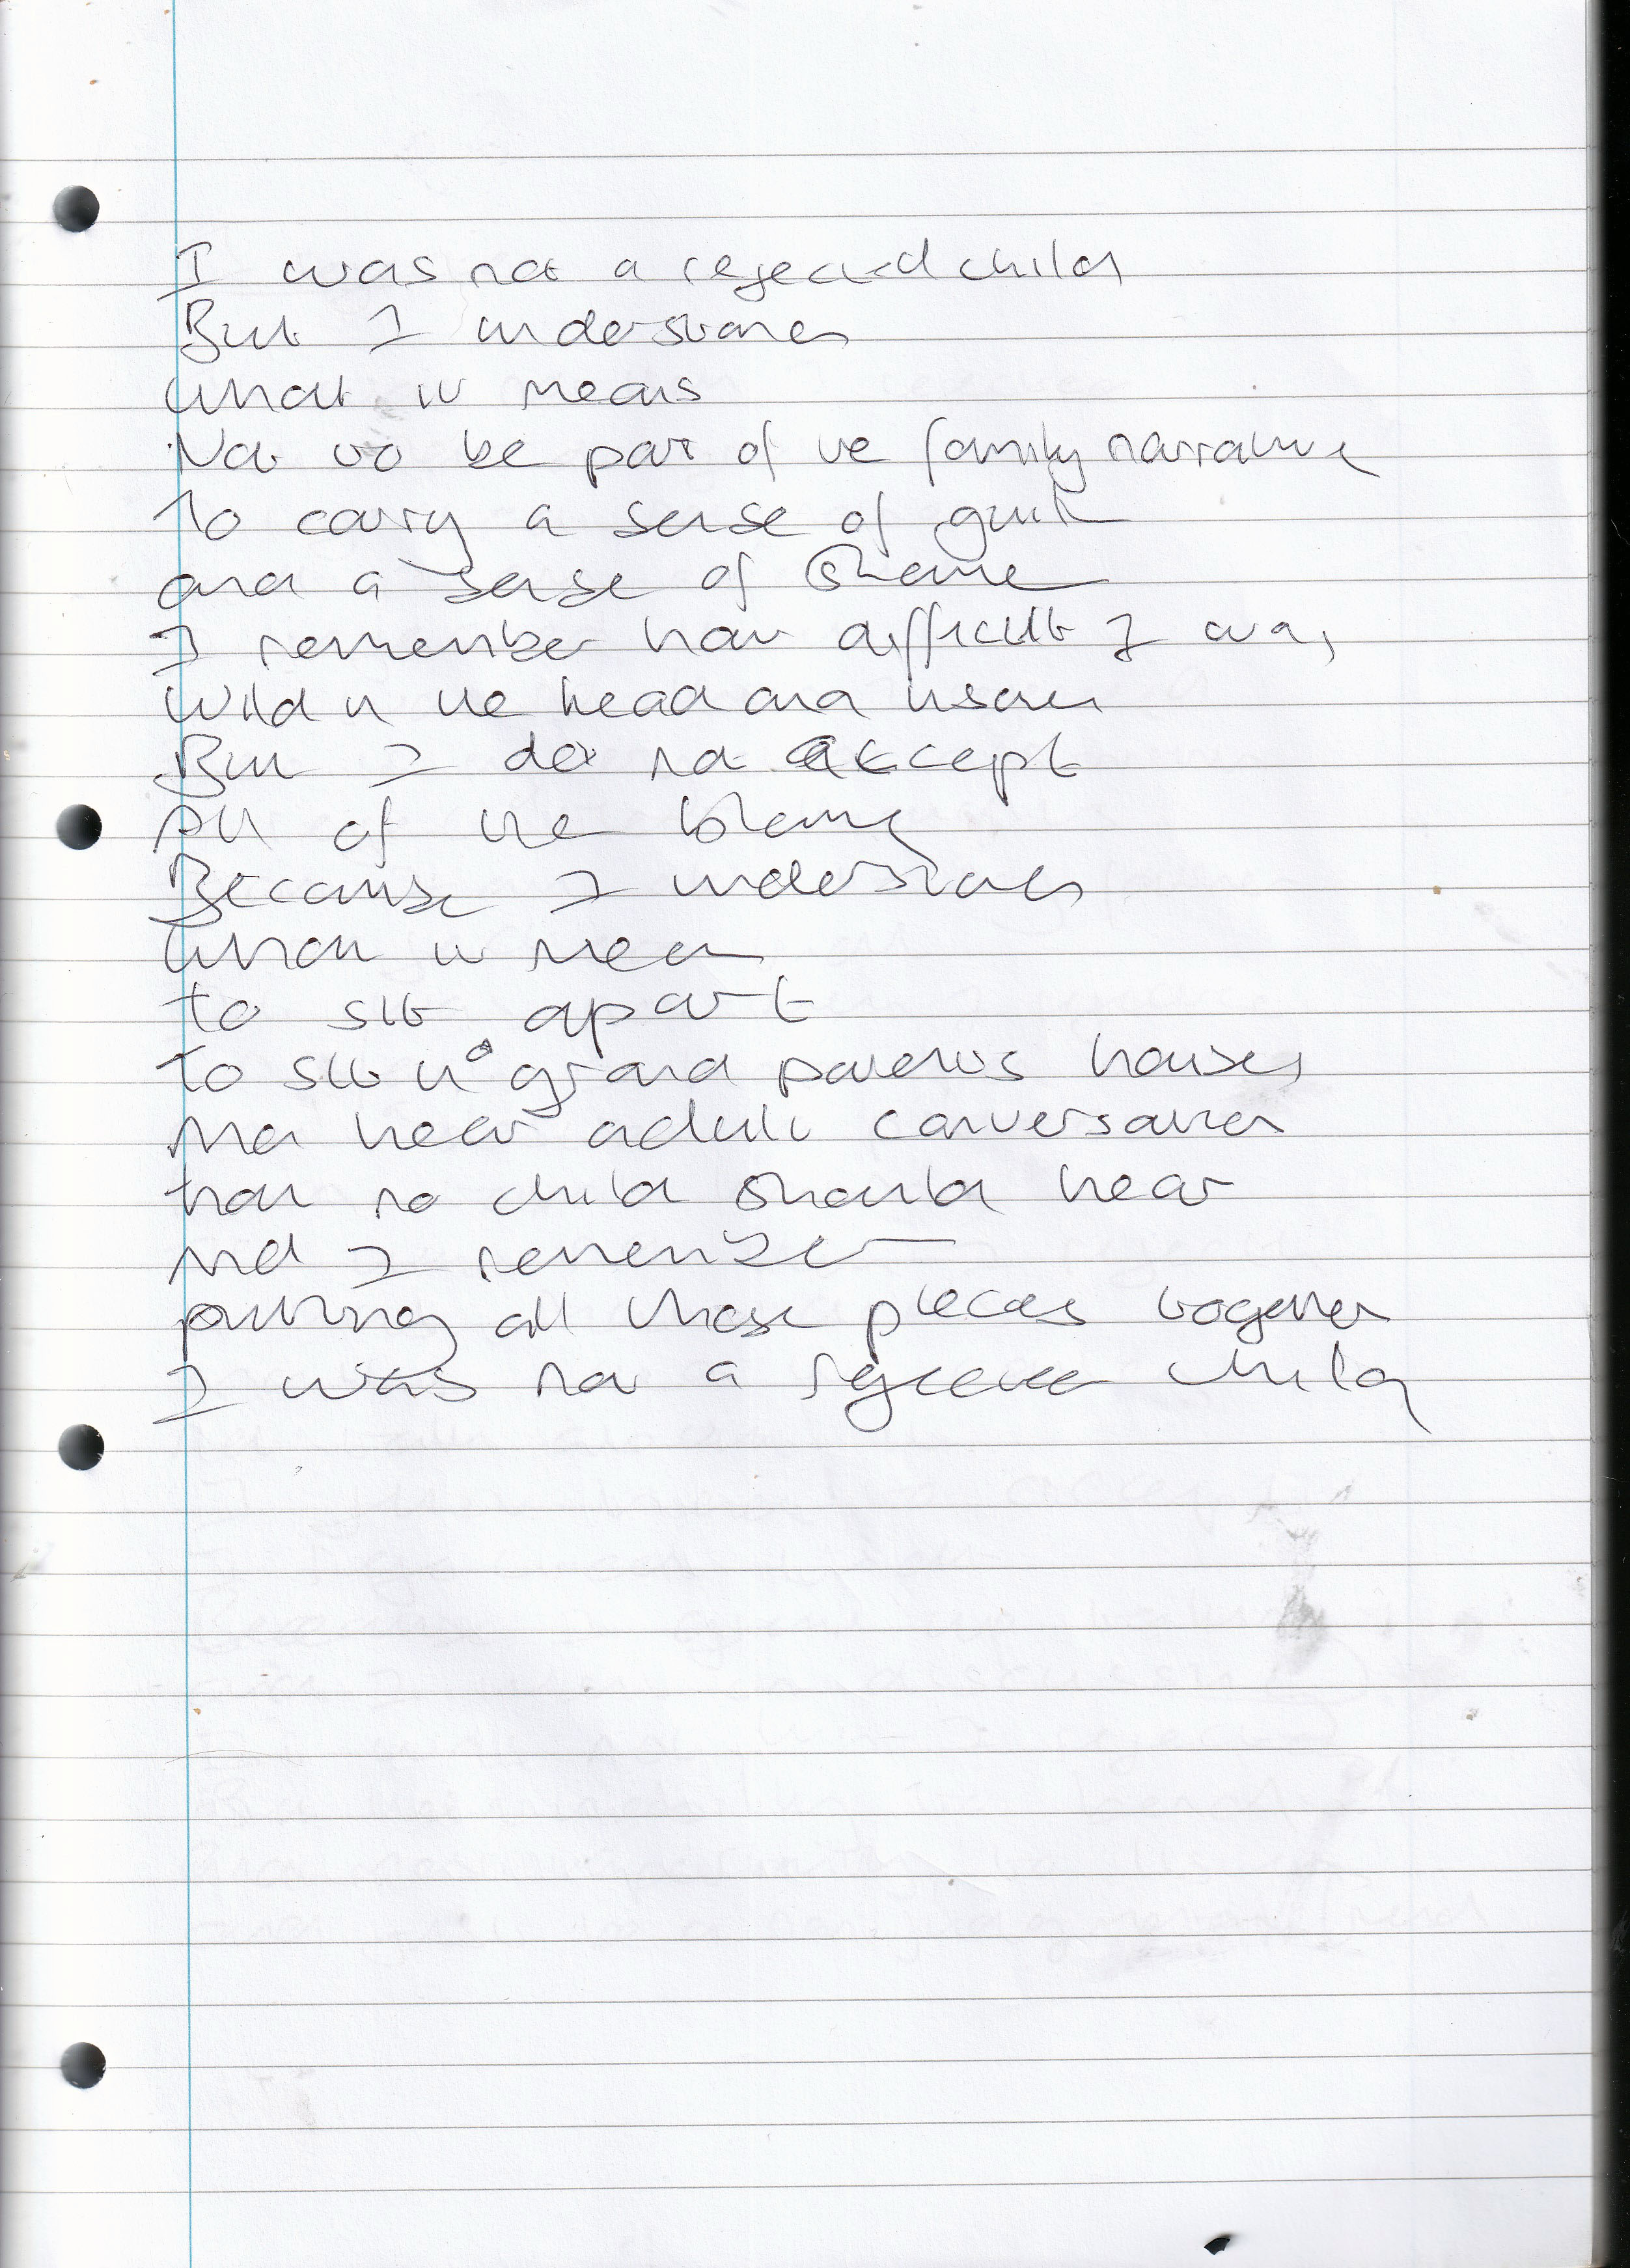 I was not a rejected child
But I understand
what it means
Not to be part of the family narrative
To carry a sense of guilt
and a sense of shame
I remember how difficult I was,
Wild in the head and
But I do not accept
All of the blame
Because I understand
what it mean
to sit apart
to sit in a grand parents houses
And hear adult conversation
that no child should hear
And I remember
putting all those pieces together
I was not a rejected child